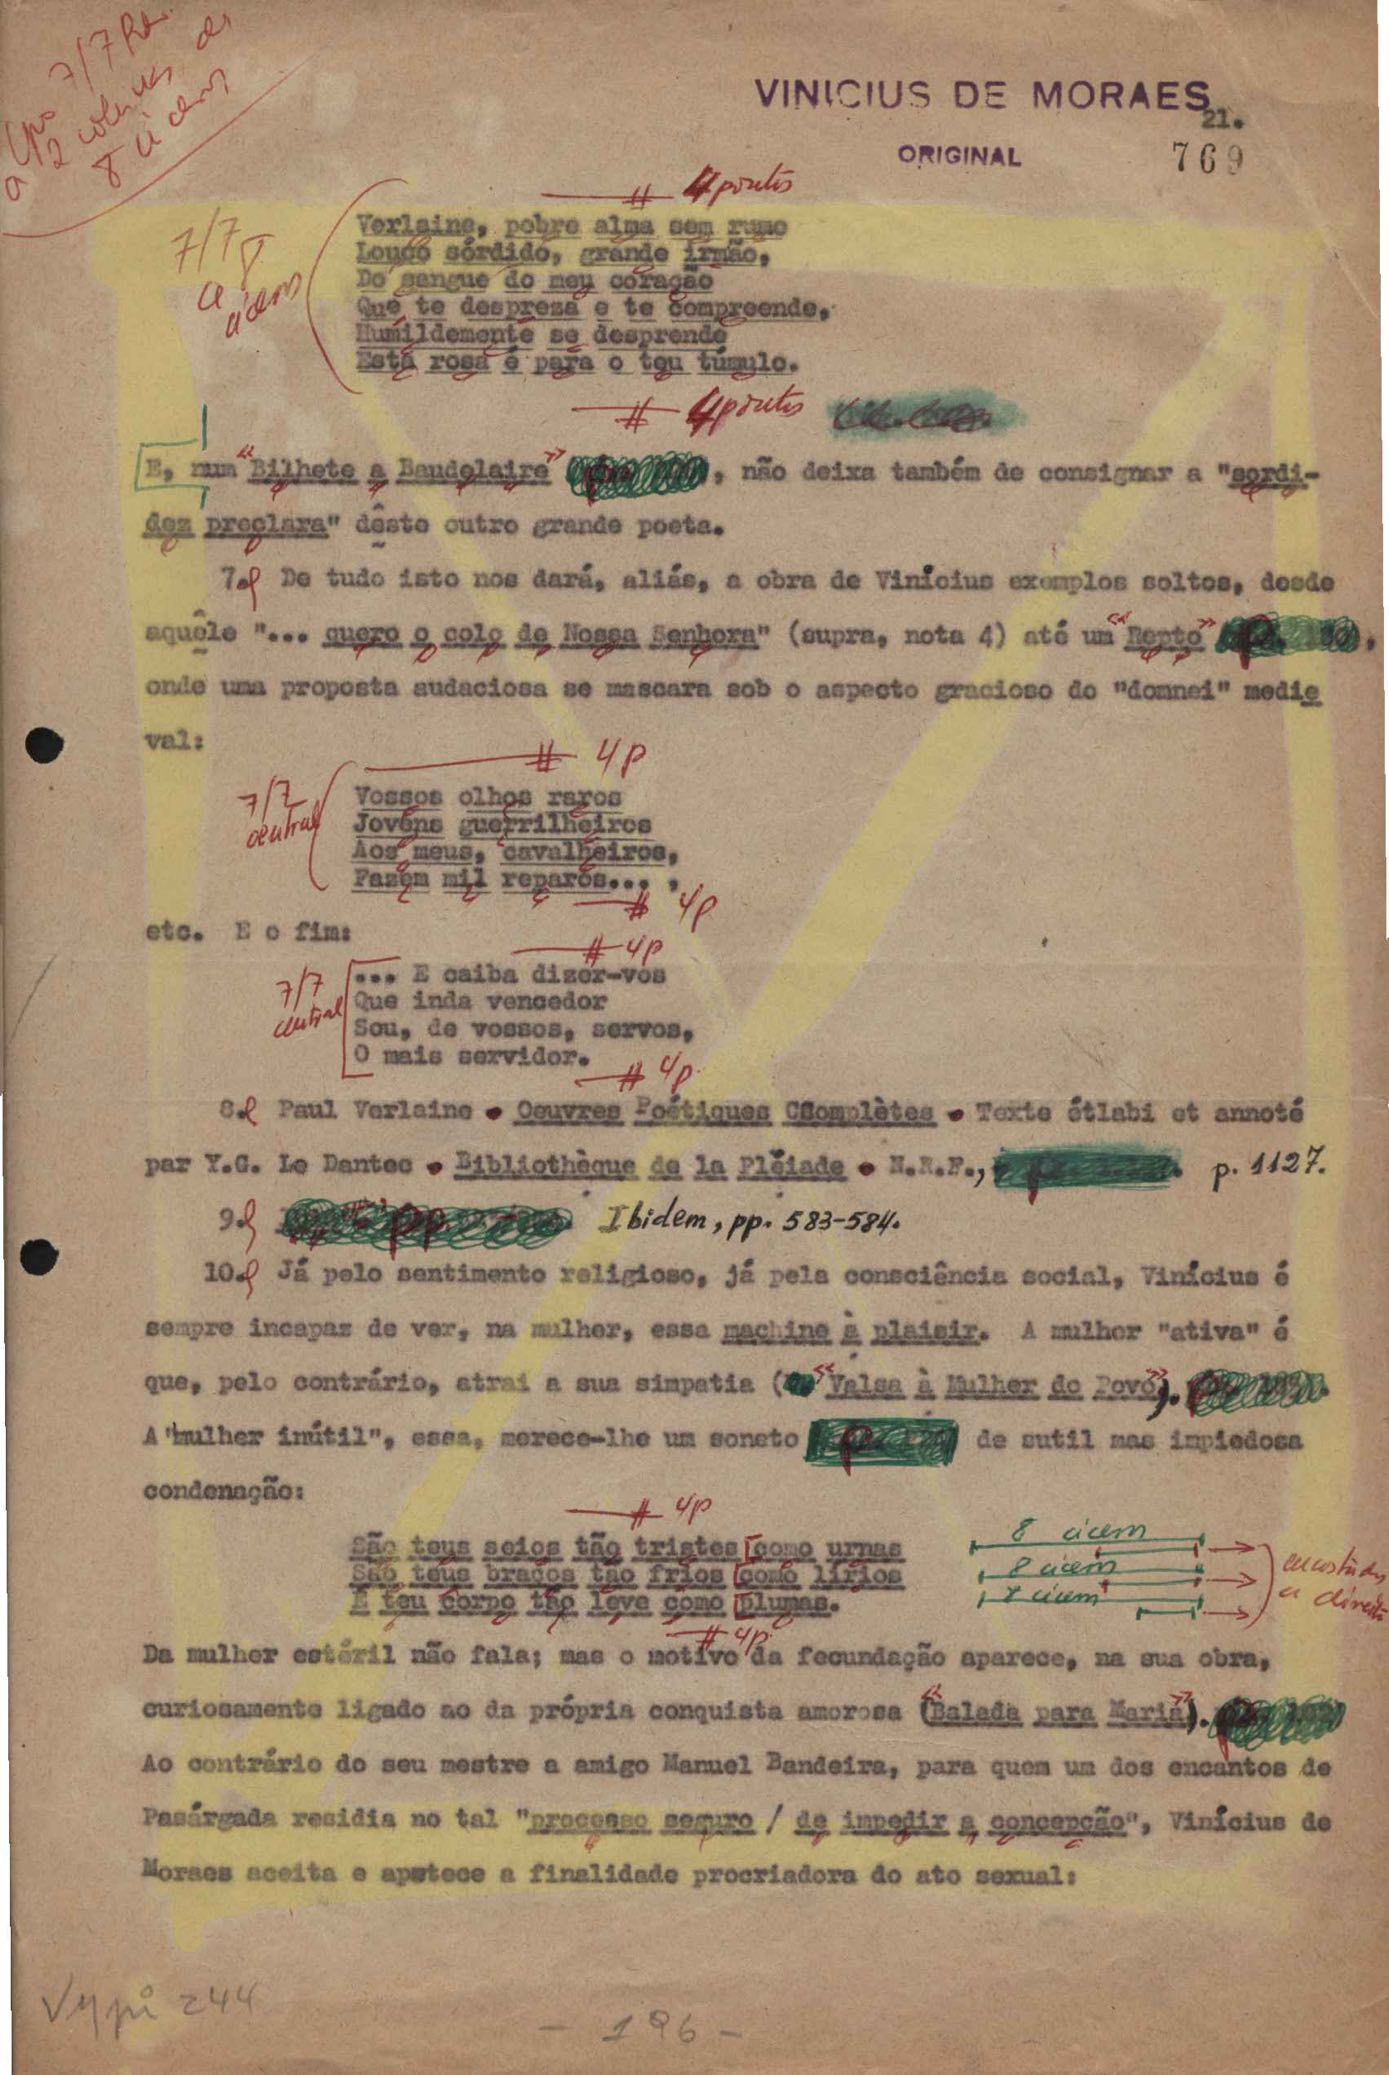 7/7 Rd.
a 2 colunas de
8 cícero
VINICIUS DE MORAES
21.
ORIGINAL
769
# 4 pontos
7/7
8
a
cícero
Verlaine, pobre alma sem rumo
Louco sórdido, grande irmão,
Do sangue do meu coração
Que te despreza e te compreende,
Humildemente se desprende
Esta rosa é para o teu túmulo.
# 4 pontos
E, num "Bilhete a Baudelaire" , não deixa também de consignar a "sordi-
dez preclara" dêste outro grande poeta.
7. De tudo isto nos dará, aliás, a obra de Vinícius exemplos soltos, desde
aquêle "... quero o colo de Nossa Senhora" (supra, nota 4) até um "Repto" ,
onde uma proposta audaciosa se mascara sob o aspecto gracioso do "domnei" medie
val:
# 4p
7/7
central
Vossos olhos raros
Jovens guerrilheiros
Aos meus, cavalheiros,
Fazem mil reparos... ,
# 4p
etc. E o fim:
# 4p
7/7
central
... E caiba dizer-vos
Que inda vencedor
Sou, de vossos, servos,
O mais servidor.
# 4p.
8. Paul Verlaine • Oeuvres Poétiques Complètes • Texte étlabi et annoté
par Y.G. Le Dantec • Bibliothèque de la Pléiade • N.R.F., p. 1127.
9. Ibidem, pp. 583-584.
10. Já pelo sentimento religioso, já pela consciência social, Vinícius é
sempre incapaz de ver, na mulher, essa machine à plaisir. A mulher "ativa" é
que, pelo contrário, atrai a sua simpatia ("Valsa à Mulher do Povo").
A "mulher inútil", essa, merece-lhe um soneto de sutil mas impiedosa
condenação:
# 4p
São teus seios tão tristes como urnas
São teus braços tão frios como lírios
E teu corpo tão leve como plumas.
8 cícero
8 cícero
8 cícero
encostados
a direita
# 4p.
Da mulher estéril não fala; mas o motivo da fecundação aparece, na sua obra,
curiosamente ligado ao da própria conquista amorosa ("Balada para Maria").
Ao contrário do seu mestre a amigo Manuel Bandeira, para quem um dos encantos de
Pasárgada residia no tal "processo seguro / de impedir a concepção", Vinícius de
Moraes aceita e apetece a finalidade procriadora do ato sexual:
244
- 196 -